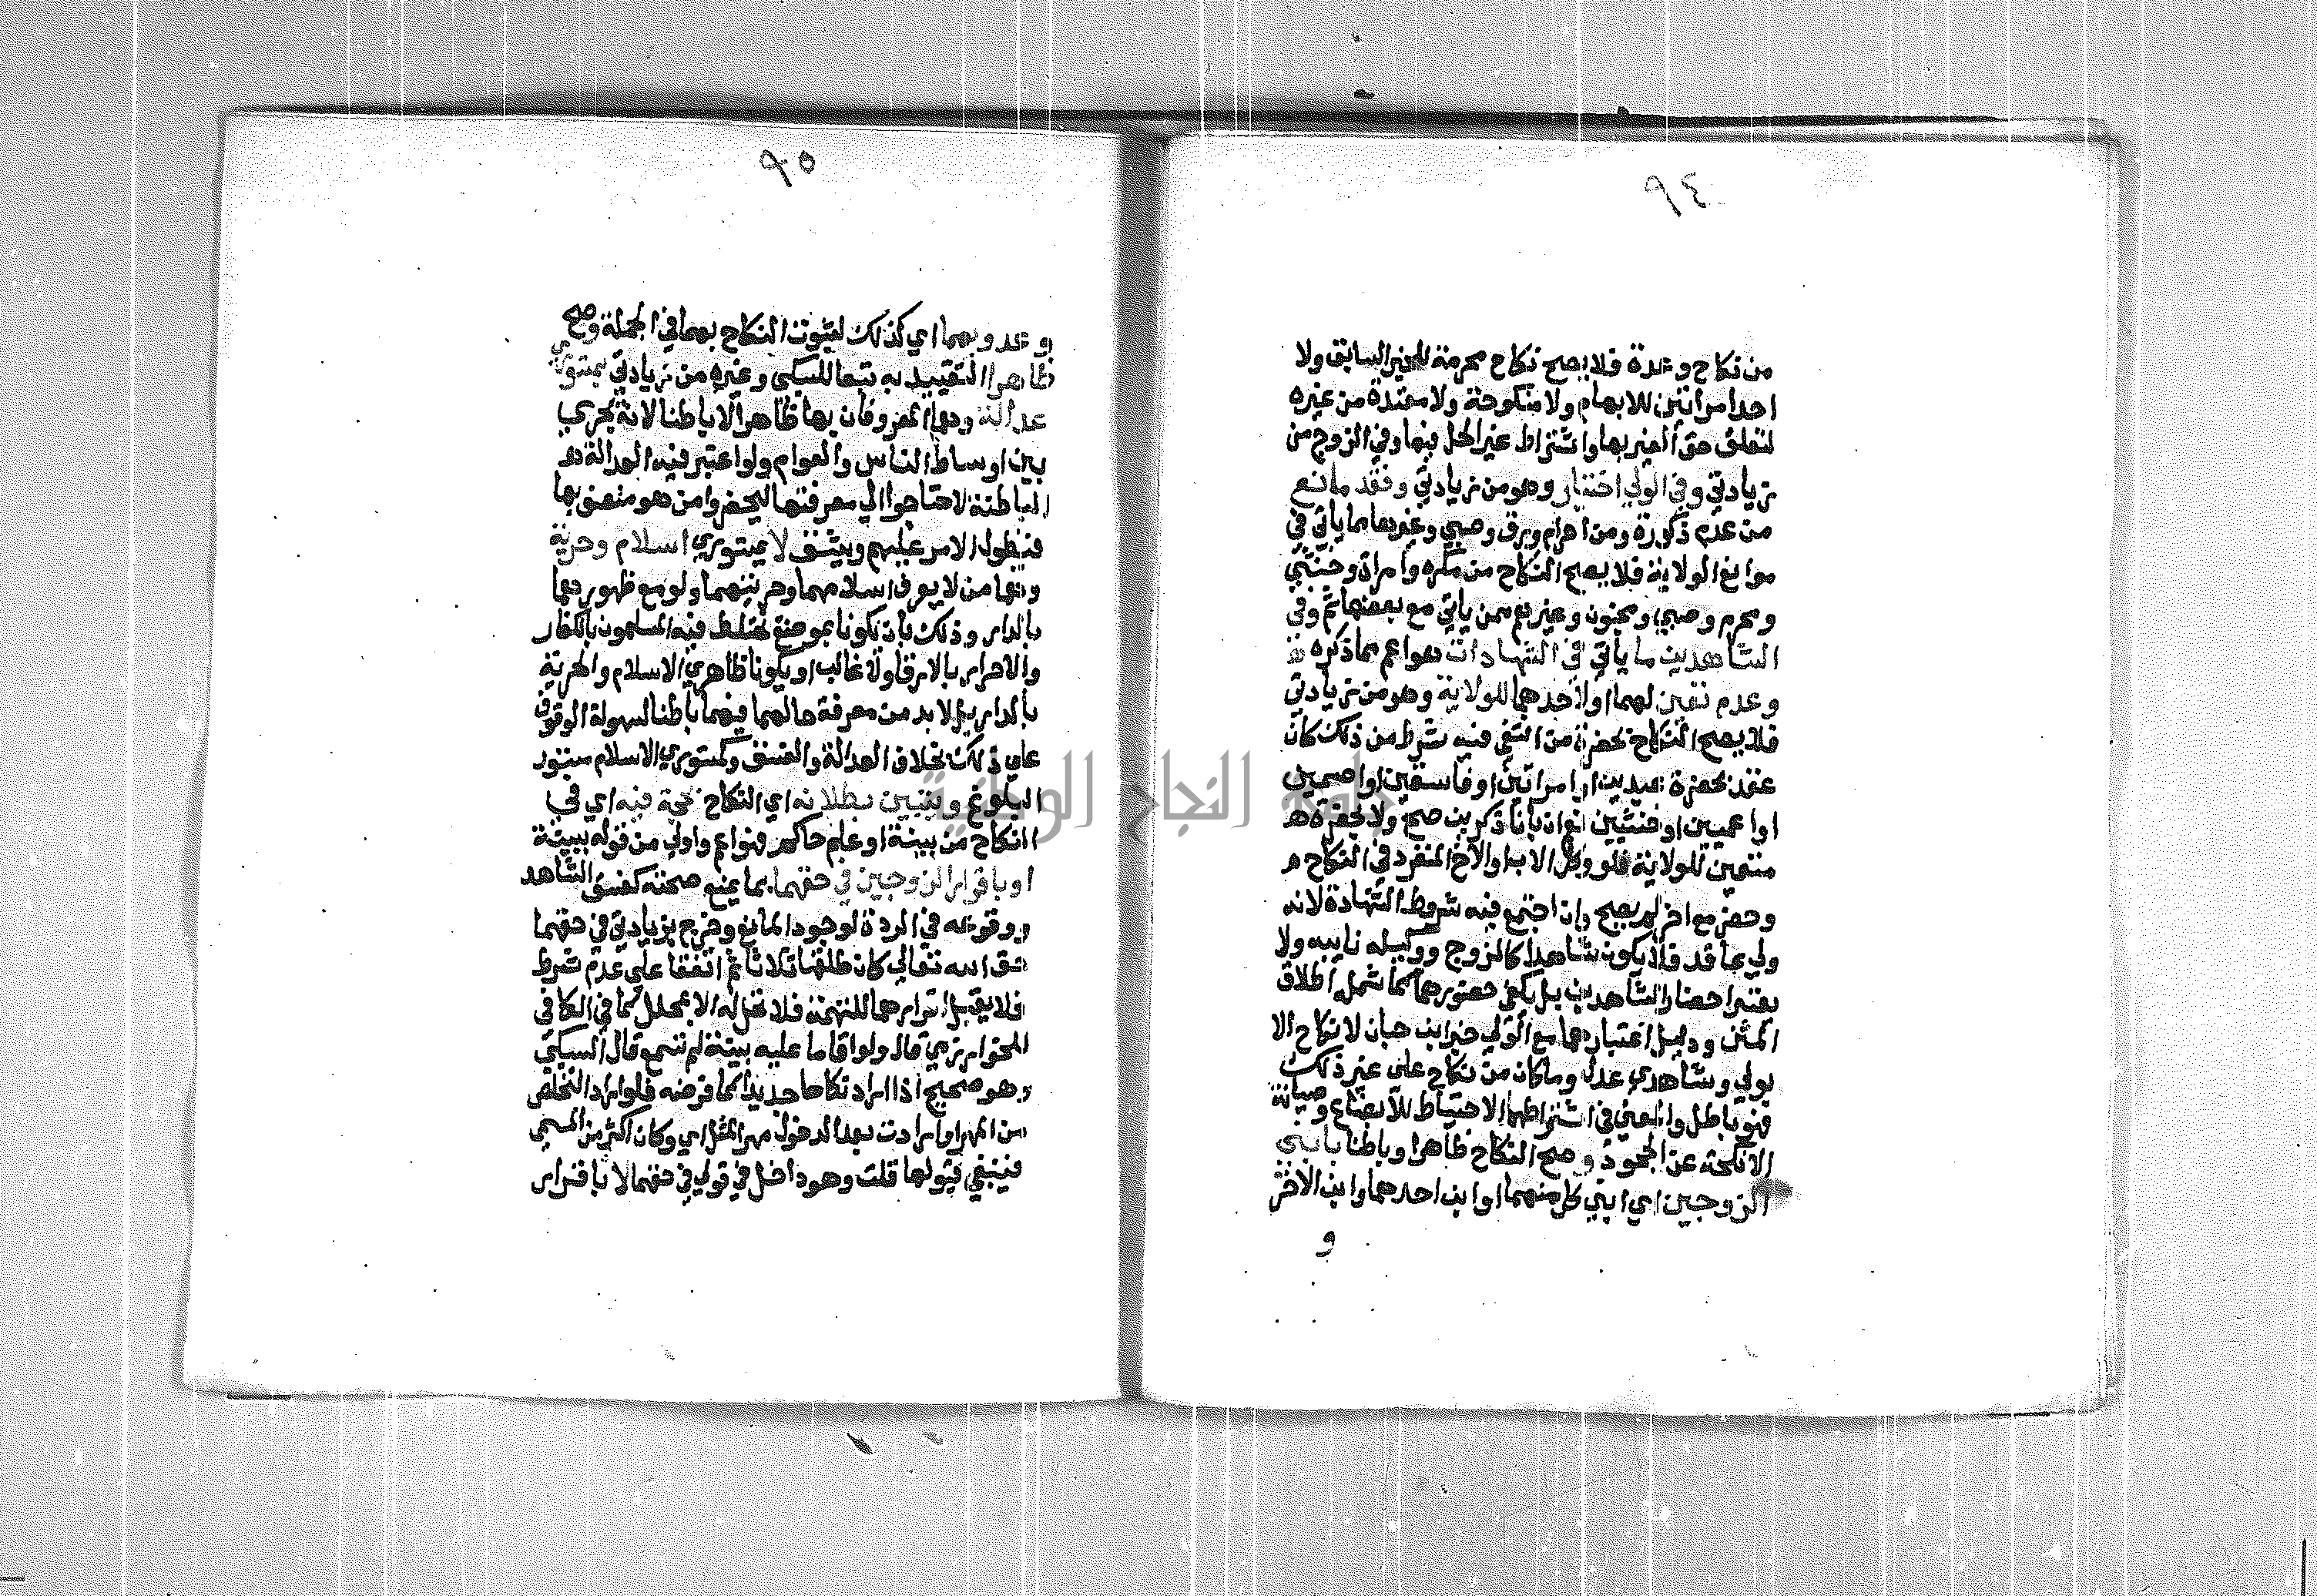 ٩٤
من نكاح وعدة فلا يصح نكاح محرمة للخبر السابق ولا
احدا مراتين للابهام ولا منكوحة ولا معتدة من غيره
لتعلق حق الغير بها واشتراط غير الحل فيها وفي الزوج من
زيادتي وفي الولي اختيار وهو من زيادتي وفقد مانع
من عدم ذكورة ومن احرام ورق وصبي وغيرها مما ياتي في
موانع الولاية فلا يصح النكاح من مكره وامراة وخنثي
ومحرم وصبي ومجنون وغيرهم ممن ياتي مع بعضها ثم وفي
الشاهدين ما ياتي في الشهادات هو اعم مما ذكره
وعدم تعين لهما او لاحدهما للولاية وهو من زيادتي
فلا يصح النكاح بحضرة من انتفي فيه شرط من ذلك كان
عقد بحضرة عبدين او امراتين او فاسقين او اصمين
او اعميين او خنثيين نعم ان بانا ذكرين صح ولا بحضرة
متعين للولاية فلو وكل الاب او الاخ المنفرد في النكاح
وحضر مع اخر لم يصح وان اجتمع فيه شروط الشهادة لانه
ولي عاقد فلا يكون شاهدا كالزوج ووكيله نايبه ولا
يعتبر احضار الشاهدين بل يكفي حضورهما كما شمله اطلاق
المتن ودليل اعتبارهما مع الولي خبر ابن حبان لا نكاح الا
بولي وشاهدي عدل وما كان من نكاح علي غير ذلك
فهو باطل والمعني في اشتراطهما الاحتياط للابضاع وصيانة
الانكحة عن الجحود وصح النكاح ظاهرا وباطنا بابني
الزوجين اي ابني كل منهما او ابن احدهما وابن الاخر
و
٩٥
وعدويهما اي كذلك لثبوت النكاح بهما في الجملة وصح
ظاهرا التقييد به تبعا للسبكي وغيره من زيادتي بمستوري
عدالة وهما المعروفان بها ظاهرا لا باطنا لانه يجري
بين اوساط الناس والعوام ولو اعتبر فيه العدالة
الباطنة لاحتاجوا الي معرفتها ليحضروا من هو متصف بها
فيطول الامر عليهم ويشق لا بمستوري اسلام وحرية
وهما من لا يعرف اسلامهما وحريتهما ولو مع ظهورهما
بالدار وذلك بان يكونا بموضع يختلط فيه المسلمون بالكفار
والاحرار بالارقا ولا غالب او يكونا ظاهري الاسلام والحرية
بالدار بل لا بد من معرفة حالهما فيهما باطنا لسهولة الوقوف
علي ذلك بخلاف العدالة والفسق وكمستوري الاسلام مستور
البلوغ ويتبين بطلانه اي النكاح بحجة فيه اي في
النكاح من بينة او علم حاكم فهو اعم واولي من قوله ببينة
او باقرار الزوجين في حقهما بما يمنع صحته كفسق الشاهد
ووقوعه في الردة لوجود المانع وخرج بزيادتي في حقهما
حق الله تعالي كان طلقها ثلاثا ثم اتفقا علي عدم شرط
فلا يقبل اقرارهما للتهمة فلا تحل له الا بمحلل كما في الكافي
للخوارزمي قال ولو اقاما عليه بينة لم تسمع قال السبكي
وهو صحيح اذا اراد نكاحا جديدا كما فرضه فلو اراد التخلص
من المهر او ارادت بعد الدخول مهر المثل اي وكان اكثر من المسمي
فينبغي قبولها قلت وهو داخل في قولي في حقهما لا باقرار